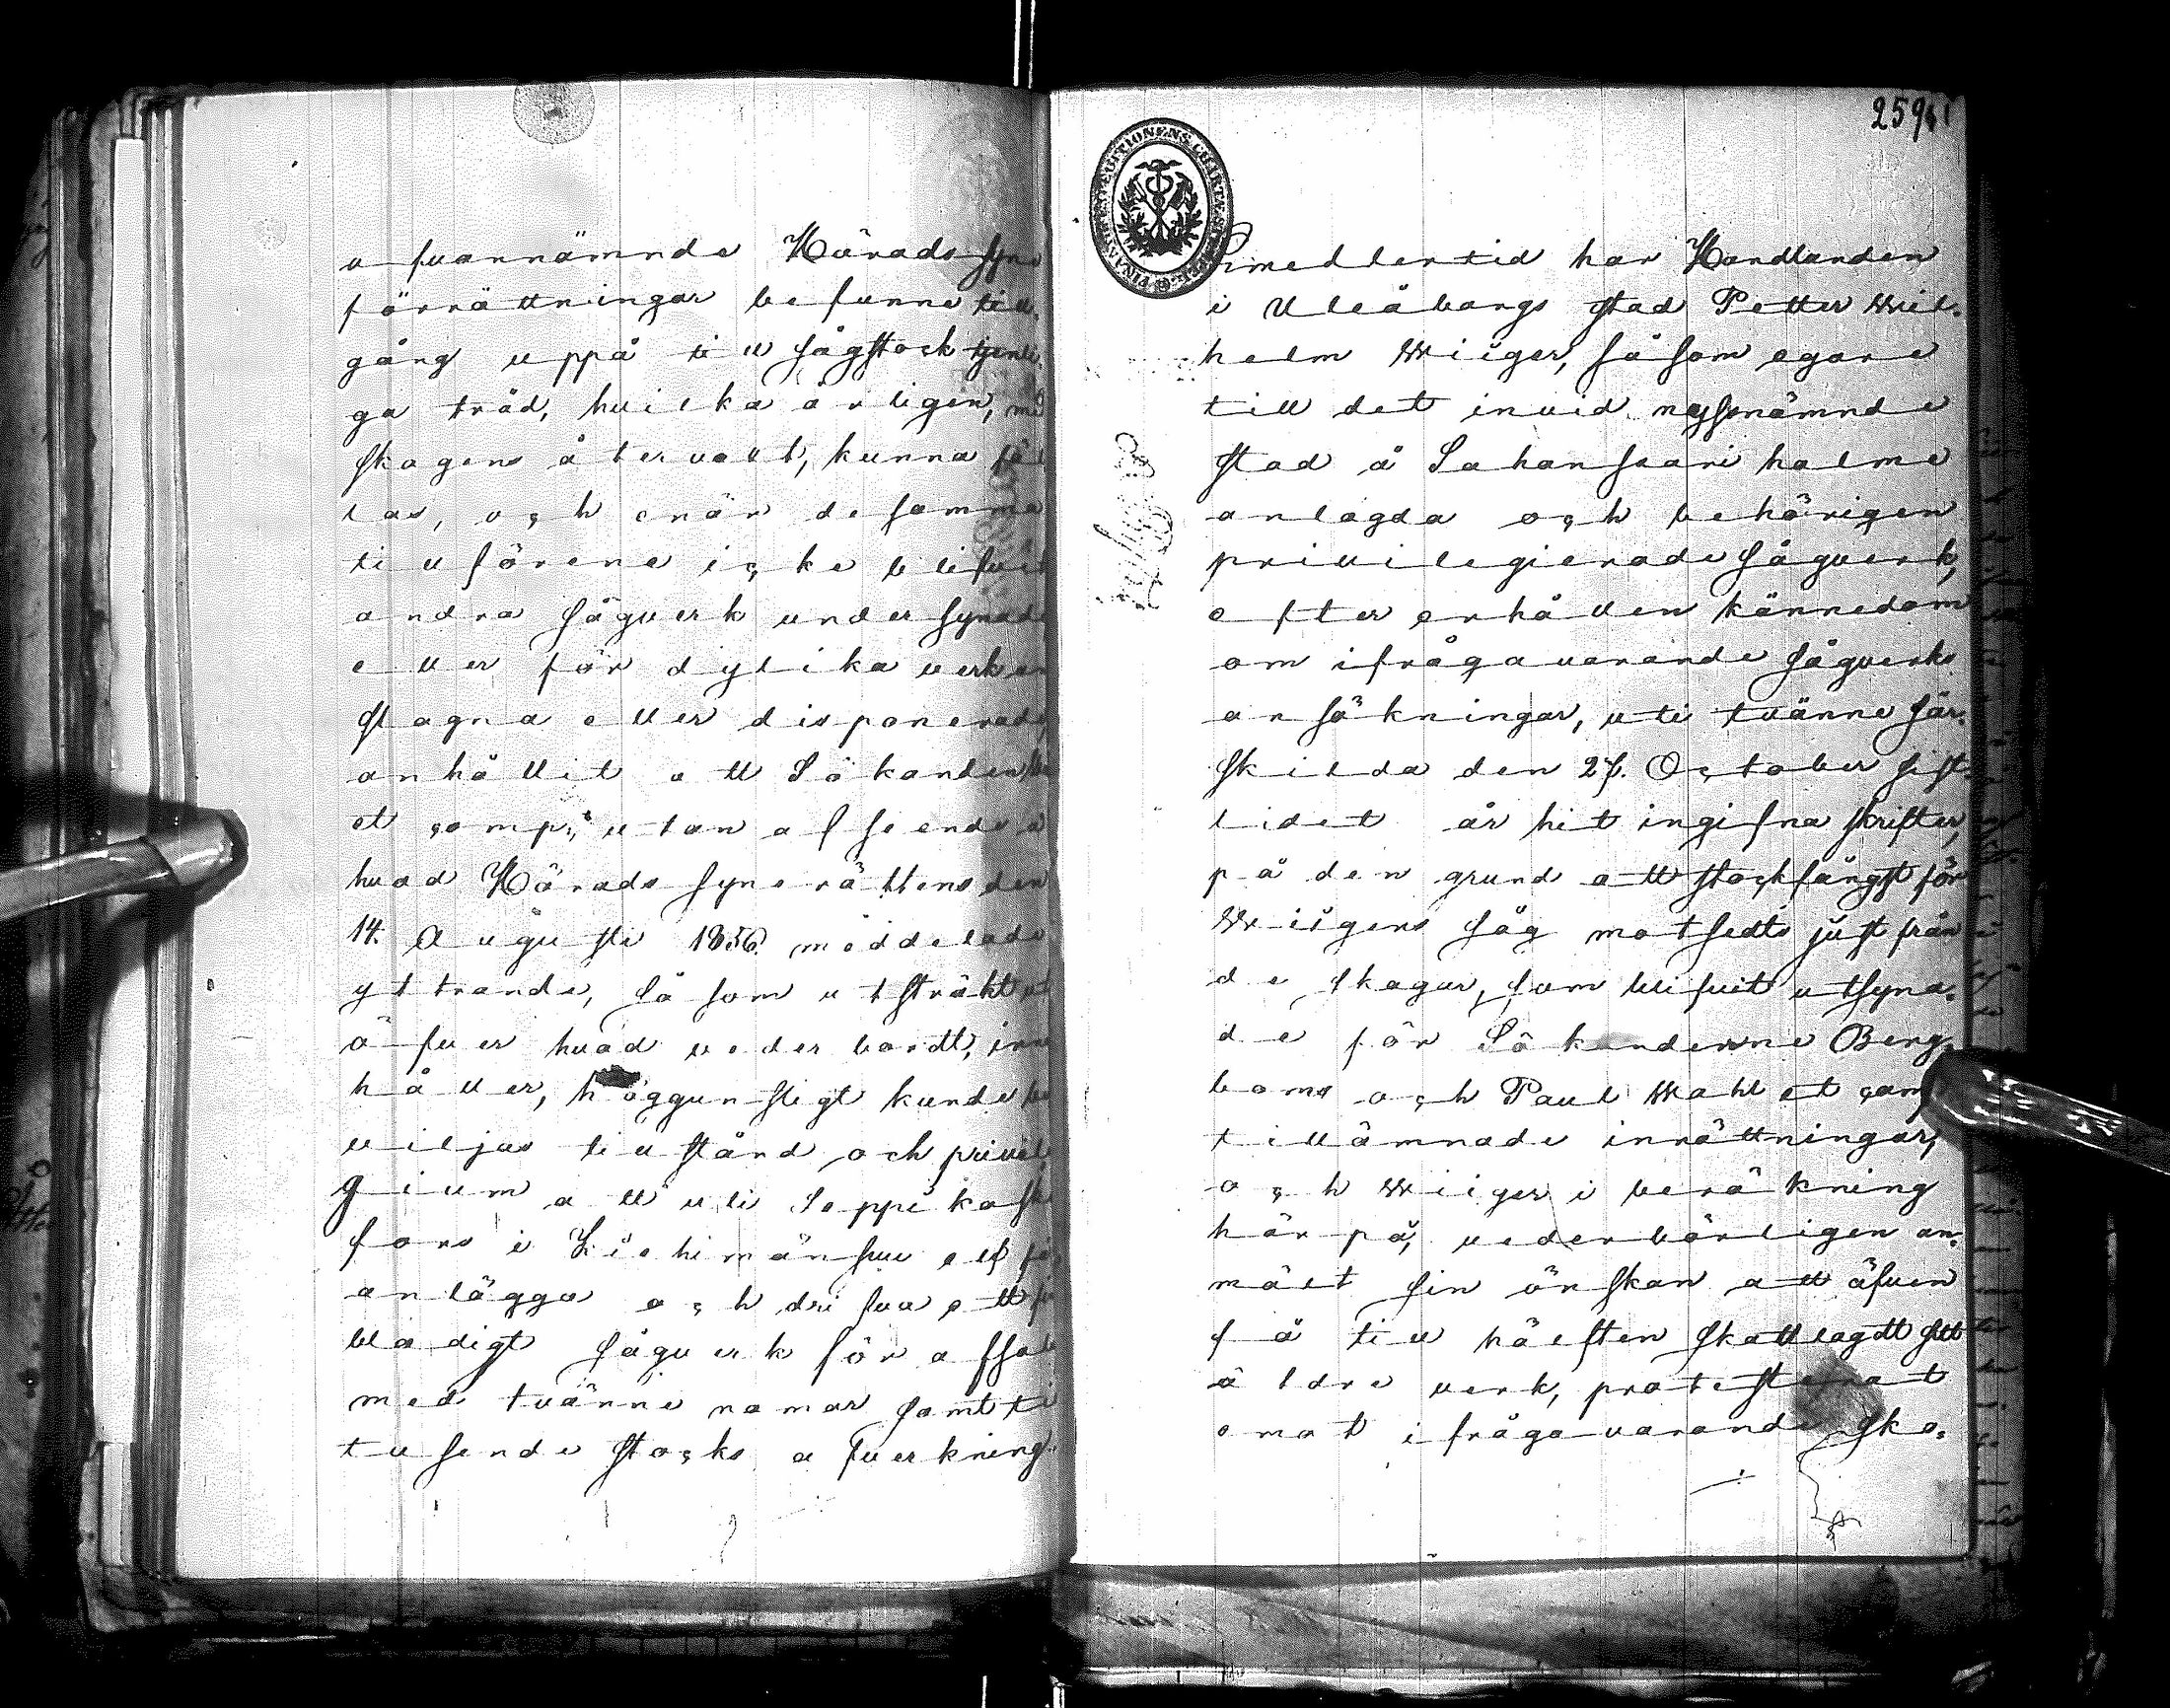 ofvannämnde Härads syne
förrättningar befunne till,
gång uppå till sågstock tjenli,
ga träd, hvilka årligen, med
skogens återvext, kunna fäl
las, och enär desamma
tillförene icke blifvit
andra sågverk undersynade
eller för dylika verk an
slagna eller disponerade,
anhållit att Sökanden
et comp:i, utan afseende å
hvad Härads syne rättens den
14. Augusti 1856. meddelade
yttrande, såsom utsträkt ut
öfver hvad vederbordt, inne
håller, höggunstigt kunde be
viljas tillstånd och privile
gium att uti Leppikoski
fors i Kiehimänsuu elf få
anlägga och drifva ett fin
bladigt sågverk för afsalu
med tvänne ramar samt ti
tusende stocks afverkning.
2591
FINANS EXPEDITIONENS CHARTÆ SIGILLATÆ
Emedlertid har Handlanden
i Uleåborgs stad Petter Wil,
helm Wiiger, såsom egare
till det invid nyssnämnde
stad å Sahansaari holme
anlagda och behörigen
privilegierade sågverk,
efter erhållen kännedom
om ifrågavarande sågverks
ansökningar, uti tvänne sär,
skilda den 27. October sist,
lidet år hit ingifna skrifter,
på den grund att stockfångst för
Wiigers såg motsedts just från
de skogar, som blifvit utsyna,
de för Sökanderne Berg,
boms och Paul Wahl et comp
tillämnade inrättningar,
och Wiiger i beräkning
härpå, vederbörligen an,
mält sin önskan att äfven
få till hälften skattlagdt sitt
äldre verk, protesterat
emot ifrågavarande sko,